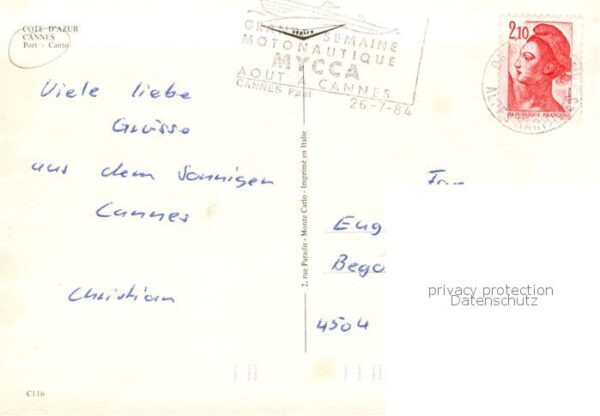 COTE D'AZUR
CANNES
Port - Canto
GRANDE SEMAINE
MOTONAUTIQUE
MYCCA
AOUT CANNES
CANNES Ppal
26-7-84
2,10
REPUBLIQUE FRANÇAISE
Viele liebe
Grüsse
aus dem Sonnigen
Cannes
Christian
2, rue Paradis - Monte Carlo - Imprimé en Italie
Eug
4504
privacy protection
Datenschutz
C116